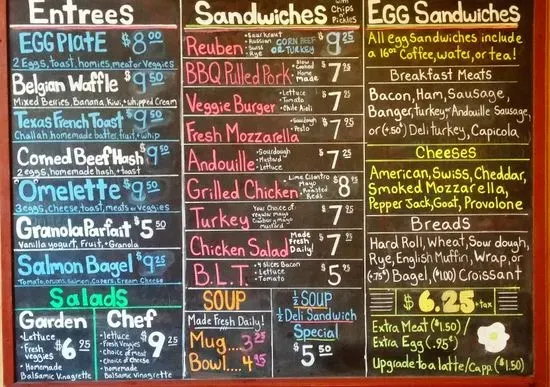 Entrees
EGG PLATE $8.00
2 Eggs, toast, homies, meat or veggies
Belgian Waffle $9.50
Mixed Berries, Banana, Kiwi, + whipped Cream
Texas French Toast $9.50
Challah, homemade batter, fruit, + whip
Corned Beef Hash $9.50
2 eggs, homemade hash, + toast
Omelette $9.50
3 eggs, cheese, toast, meats or veggies
Granola Parfait $5.50
Vanilla yogurt, Fruit, + Granola
Salmon Bagel $9.25
Tomato, onions, Salmon, Capers, Cream Cheese
Salads
Garden $6.25
• Lettuce
• Fresh veggies
• Homemade Balsamic Vinagrette
Chef $9.25
• lettuce
• Fresh Veggies
• choice of meat
• Choice of cheese
• homemade balsamic Vinagrette
Sandwiches with Chips + Pickles
Reuben • Sauerkraut • Russian • Swiss • Rye CORNED BEEF or TURKEY $9.25
BBQ Pulled Pork • Slow Cooked Home made $7.25
Veggie Burger • Lettuce • Tomato • Chile Aioli $7.25
Fresh Mozzarella • Sourdough • Pesto $7.95
Andouille • Sourdough • Mustard • Lettuce $7.25
Grilled Chicken • Lime Cilantro Mayo Roasted Reds $8.95
Turkey Your Choice of regular mayo Cranberry mayo Mustard $7.95
Chicken Salad Made Fresh Daily! $7.25
B.L.T. • 4 Slices Bacon • Lettuce • Tomato $5.95
SOUP
Made Fresh Daily!
Mug....3.25
Bowl....4.95
½ SOUP
½ Deli Sandwich
Special
$5.50
EGG Sandwiches
All egg Sandwiches include
a 16oz Coffee, water, or tea!
Breakfast Meats
Bacon, Ham, Sausage,
Banger, turkey or Andouille Sausage,
or (+.50¢) Deli turkey, Capicola
Cheeses
American, Swiss, Cheddar,
Smoked Mozzarella,
Pepper Jack, Goat, Provolone
Breads
Hard Roll, Wheat, Sour dough,
Rye, English Muffin, Wrap, or
(+.75¢) Bagel, ($1.00) Croissant
$6.25 + tax
Extra Meat ($1.50)/
Extra Egg (.95¢)
Upgrade to a latte/Capp. ($1.50)